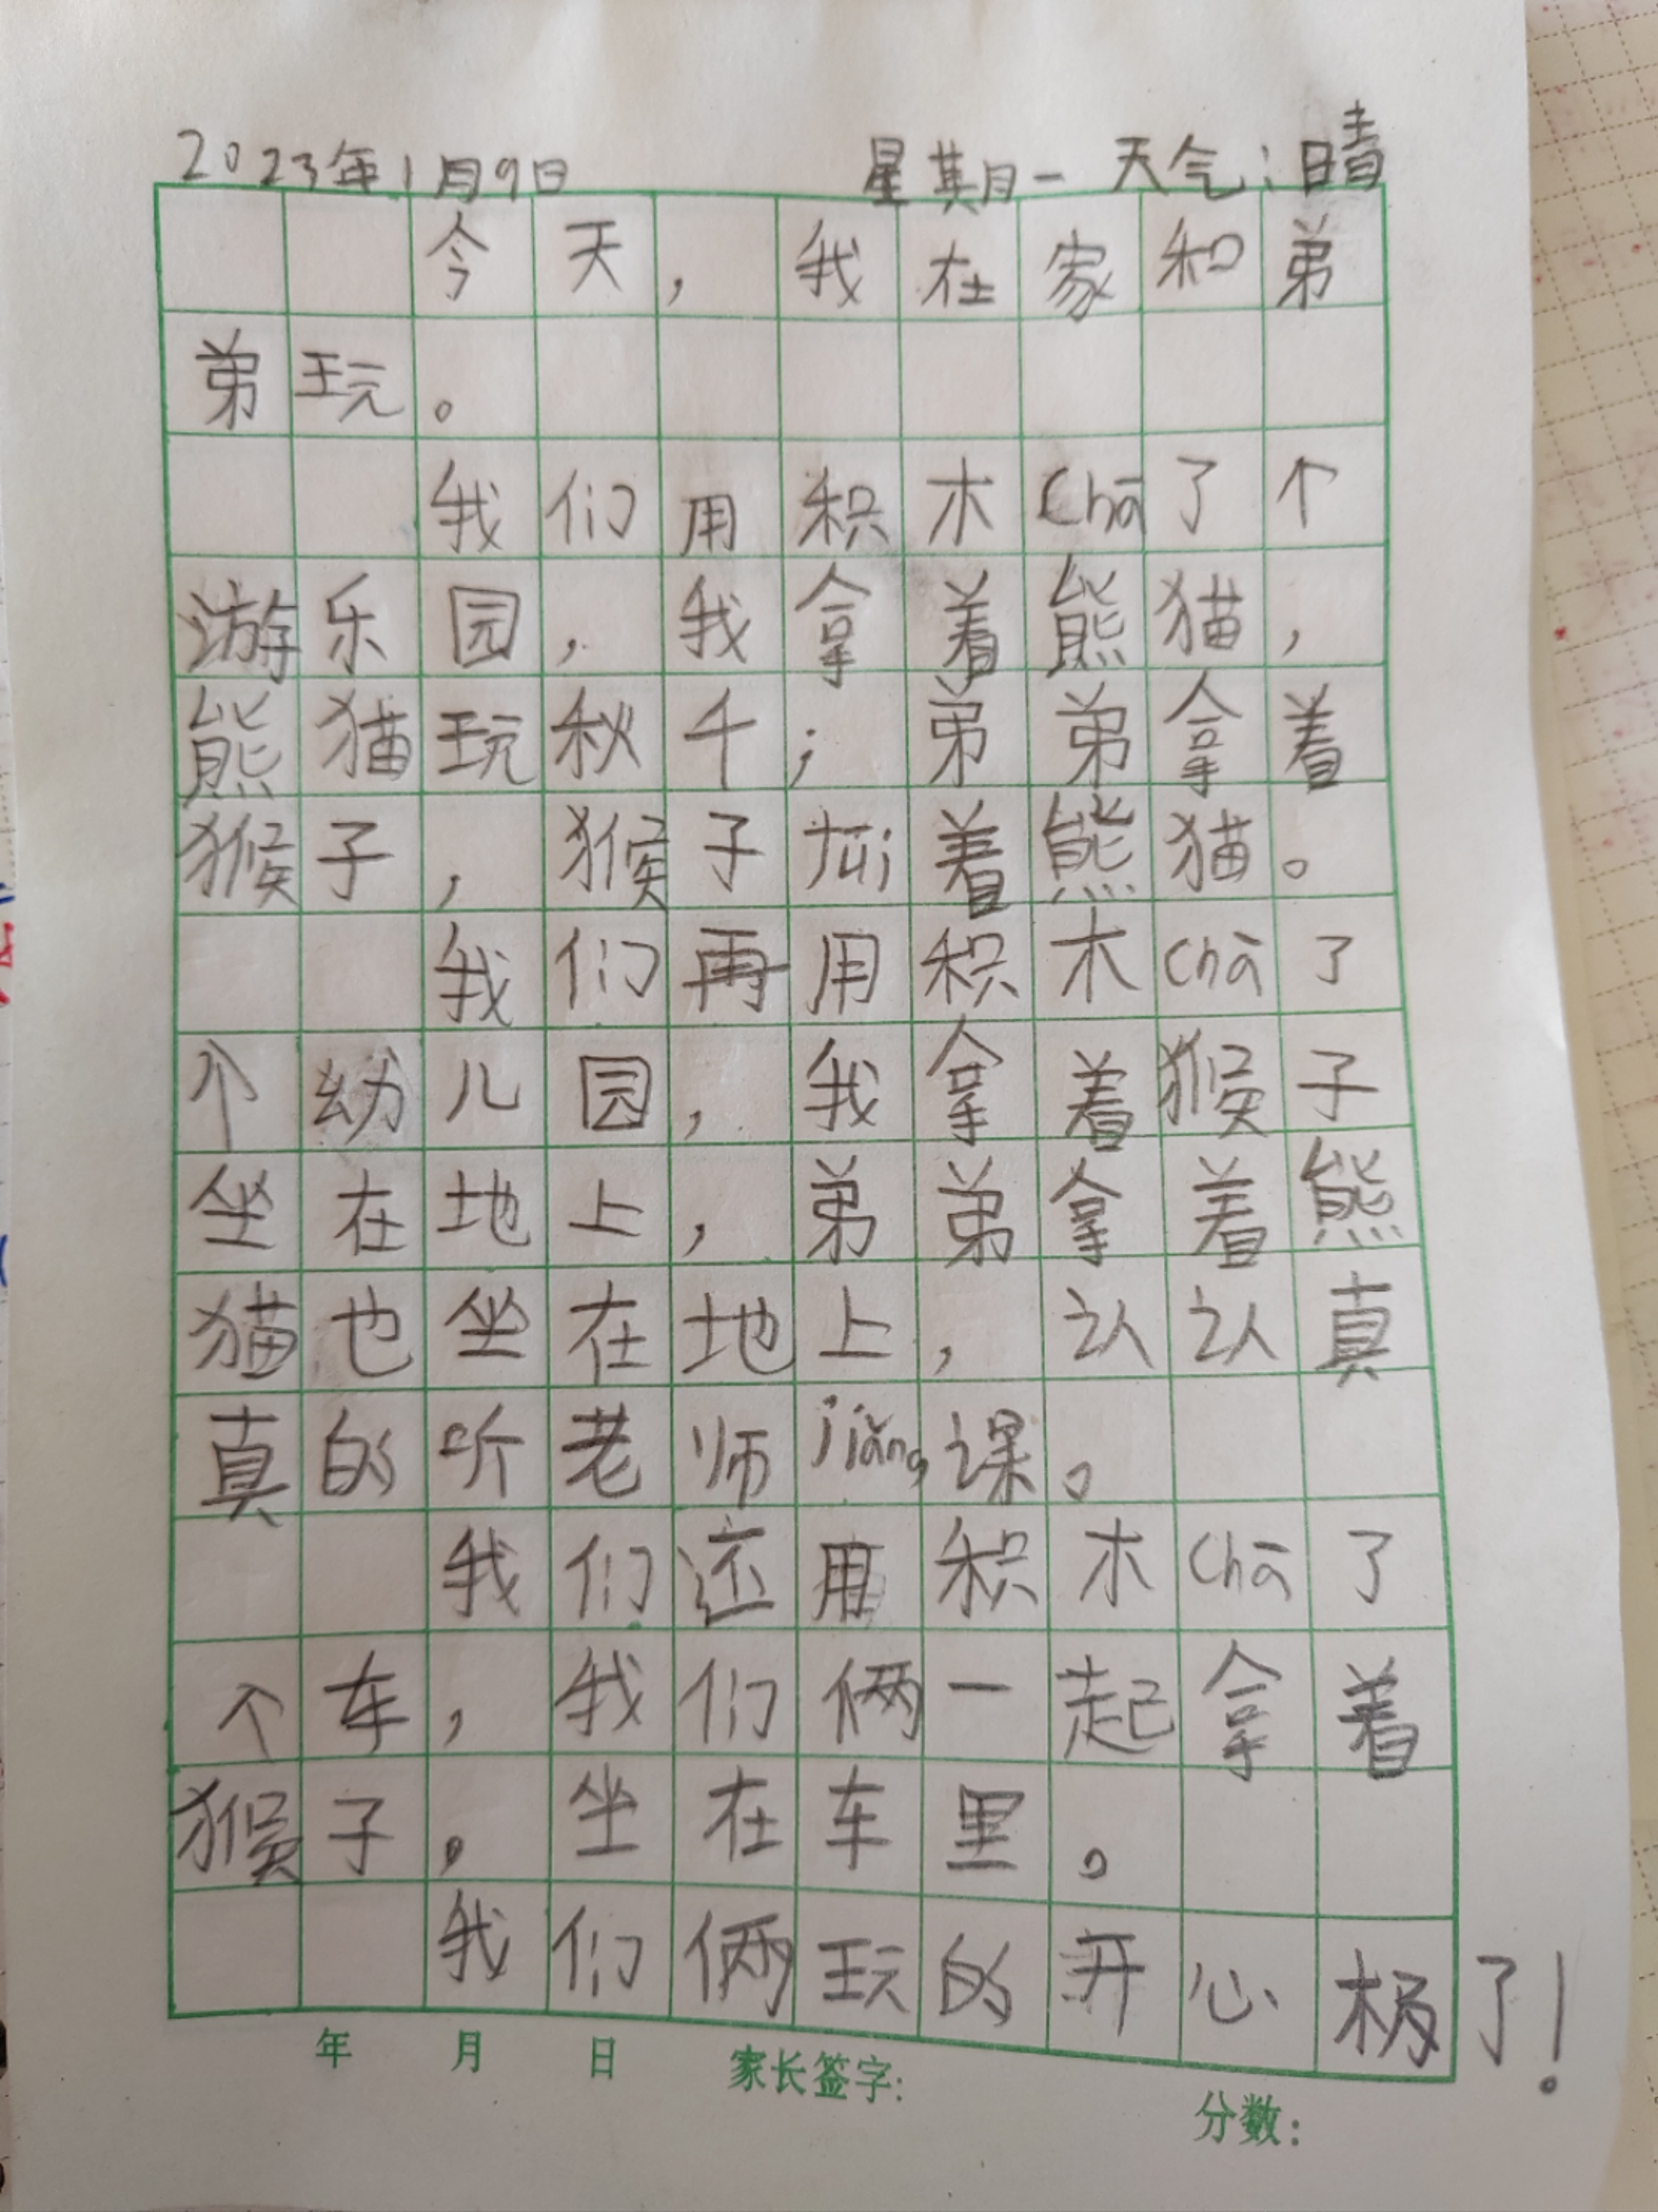 2023年1月9日 星期一 天气:晴
今天，我在家和弟
弟玩。
我们用积木chā了个
游乐园，我拿着熊猫，
熊猫玩秋千；弟弟拿着
猴子，猴子tuī着熊猫。
我们再用积木chā了
个幼儿园，我拿着猴子
坐在地上，弟弟拿着熊
猫也坐在地上，认认真
真的听老师jiǎng课。
我们还用积木chā了
个车，我们俩一起拿着
猴子。坐在车里。
我们俩玩的开心极了！
年 月 日 家长签字:
分数: